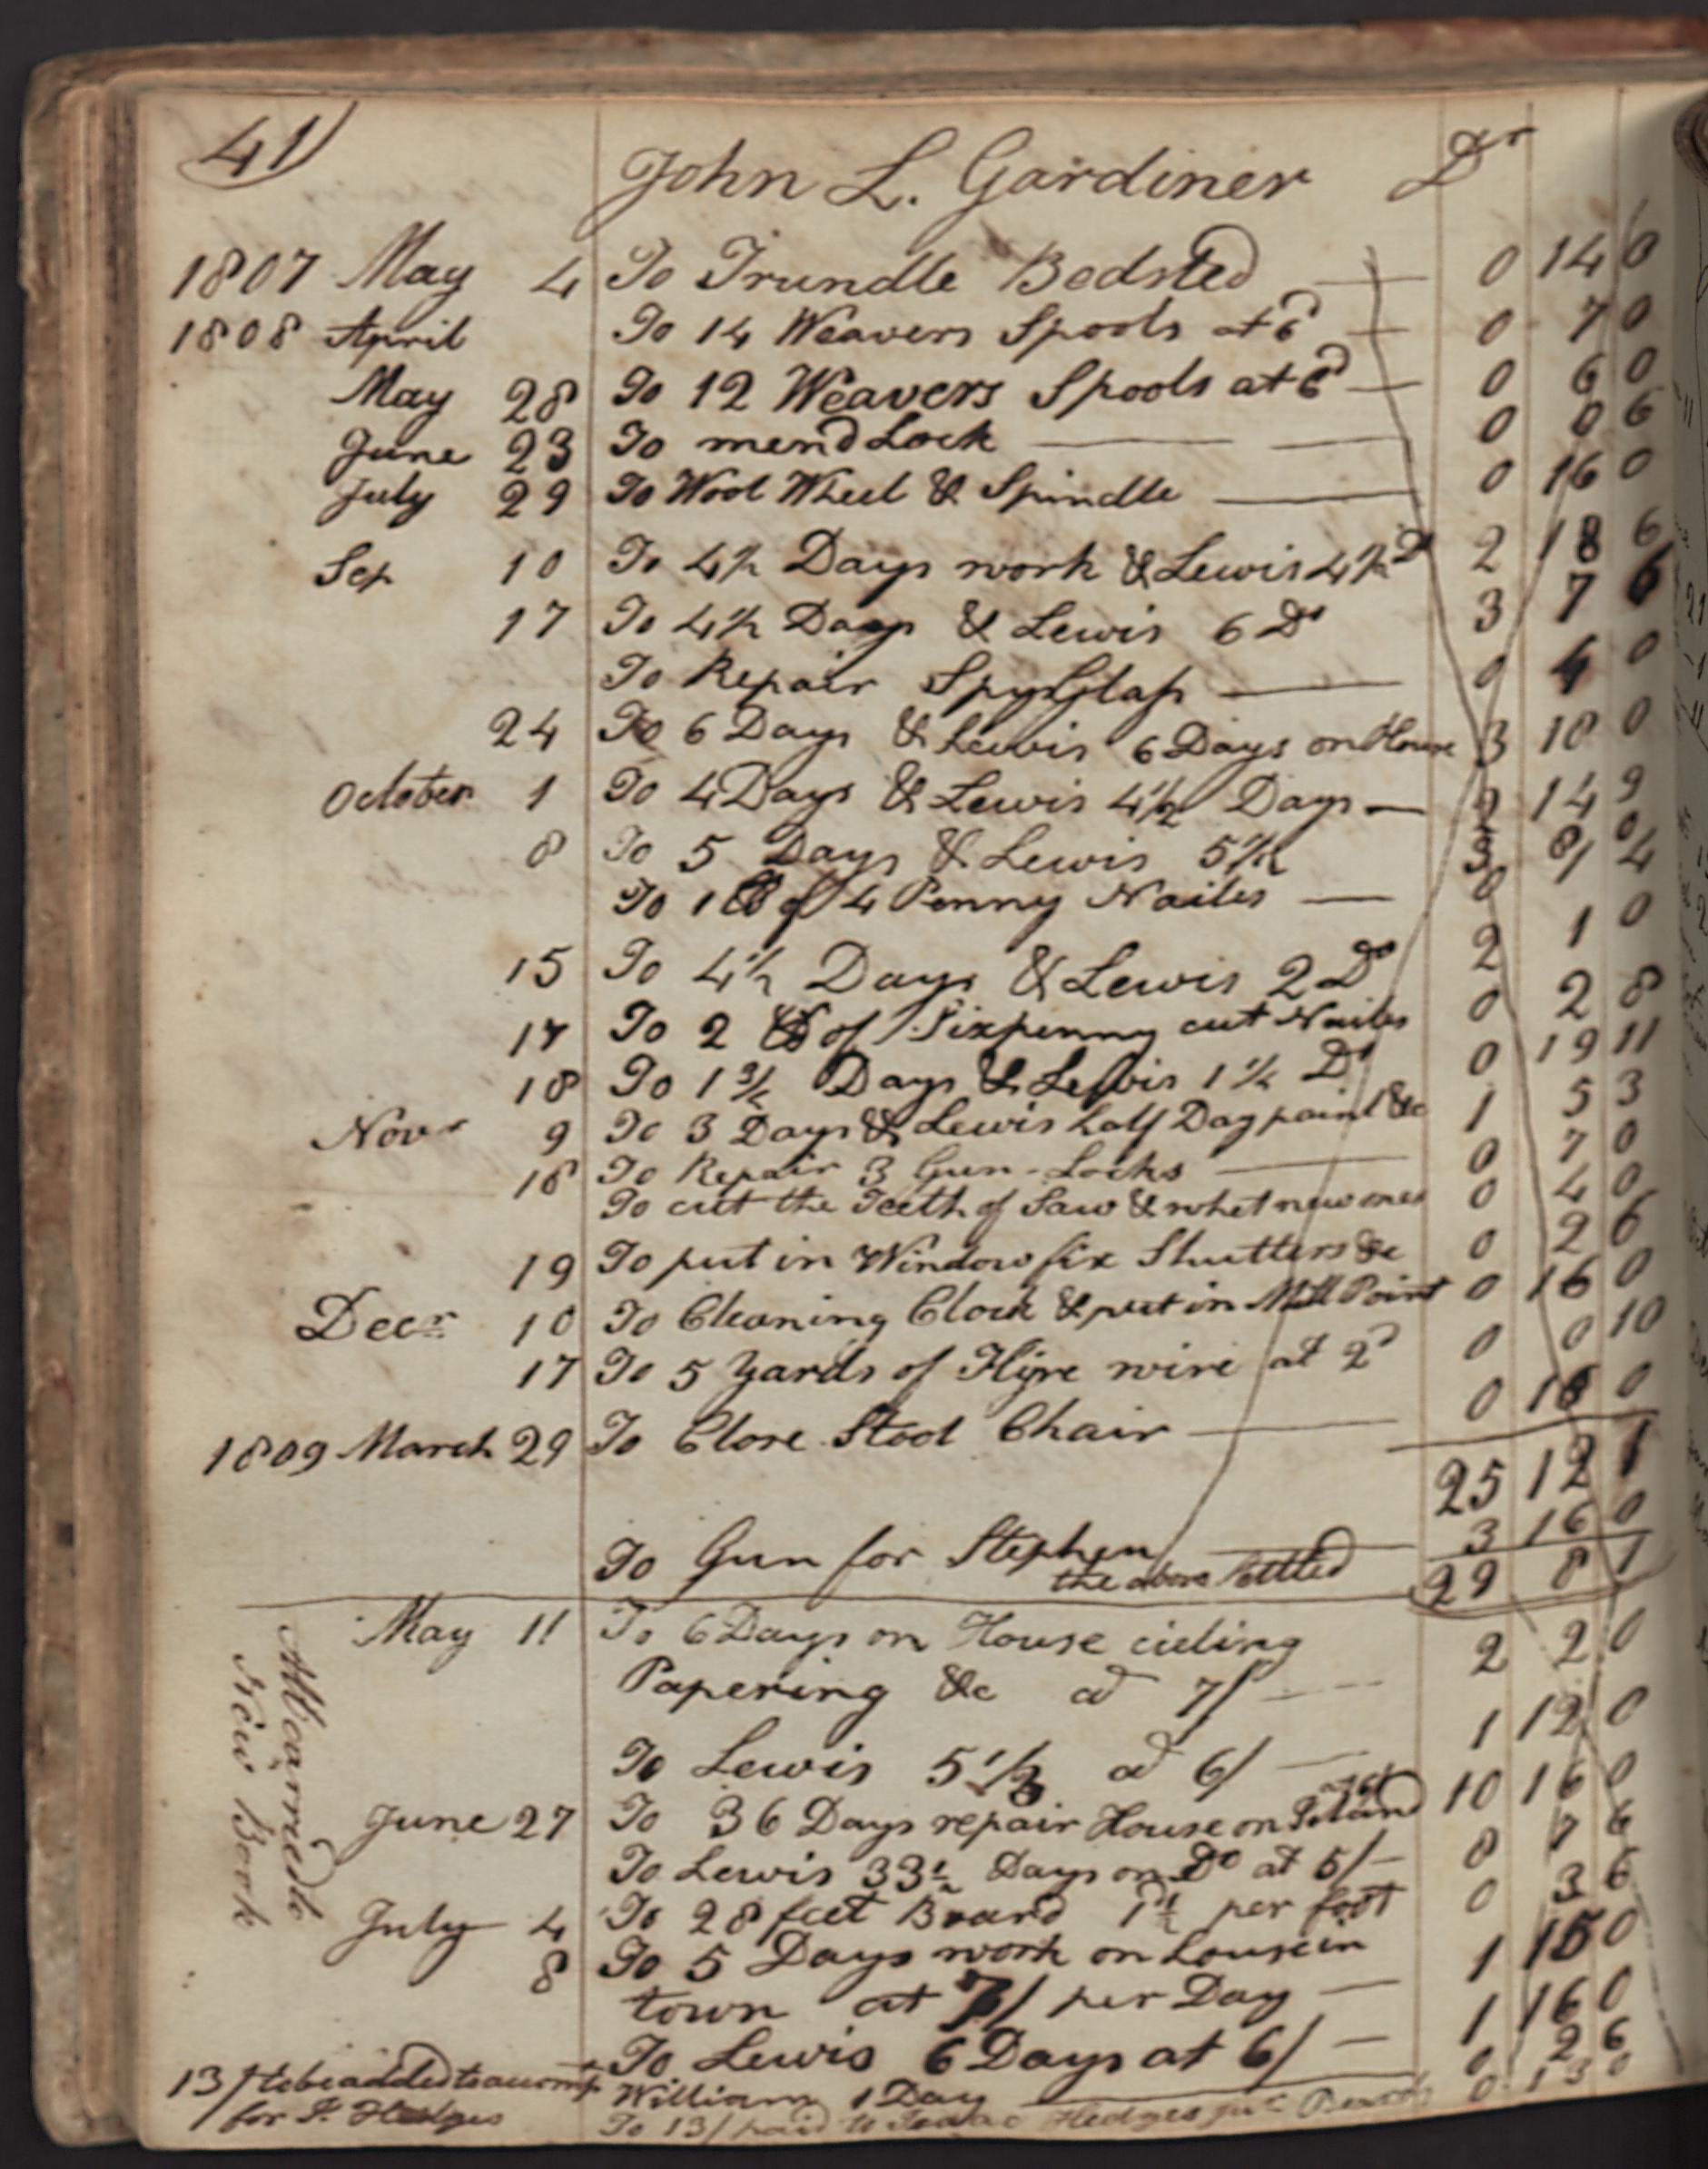 41
John L. Gardiner Dr
1807 May 4 To Trundle Bedsted 0 14 0
1808 April To 14 Weavers Spools at 6d 0 7 0
May 28 To 12 Weavers Spools at 6d 0 6 0
June 23 To mend Lock 0 0 6
July 29 To Wool Wheel & Spindle 0 16 0
Sep 10 To 4½ Days work & Lewis 4½ Do 2 18 6
17 To 4½ Days & Lewis 6 Do 3 7 6
To Repair SpyGlass 0 4 0
24 To 6 Days & Lewis 6 Days on House 3 18 0
October 1 To 4 Days & Lewis 4½ Days 2 14 9
8 To 5 Days & Lewis 5½ 3
To 1 lb of 4 Penny Nailes 0
15 To 4½ Days & Lewis 2 Do 2 1 0
17 To 2 lb of Sixpenny cut Nailes 0 2 8
18 To 1¾ Days & Lewis 1¼ Do 0 19 11
Novr 9 To 3 Days & Lewis half Day paint &c 1 5 3
18 To Repair 3 Gun-Locks 0 7 0
To cut the Teeth of Saw & whet new ones 0 4 0
19 To put in Window fix Shutters &c 0 2 6
Decr 10 To Cleaning Clock & put in Mill Point 0 16 0
17 To 5 Yards of Flyre wire at 2d 0 0 10
1809 March 29 To Close Stool Chair 0 16 0
25 12 1
To Gun for Stephen 3 16 0
the above Settled 29 8 1
May 11 To 6 Days on House cieling
Papering &c a 7/ 2 2 0
To Lewis 5½ a 6/ 1 12 0
June 27 To 36 Days repair House on Island at 6/ 10 16 0
To Lewis 33½ Days on Do at 5/ 8 7 6
July 4 To 28 feet Board 1d½ per foot 0 3 6
8 To 5 Days work on house in
town at 7/ per Day 1 15 0
To Lewis 6 Days at 6/ 1 16 0
William 1 Day 0 2 6
To 13/ paid to Isaac Hedges 0 13 0
All carried to
New Book
13/ to be added to accompt
for I. Hedges